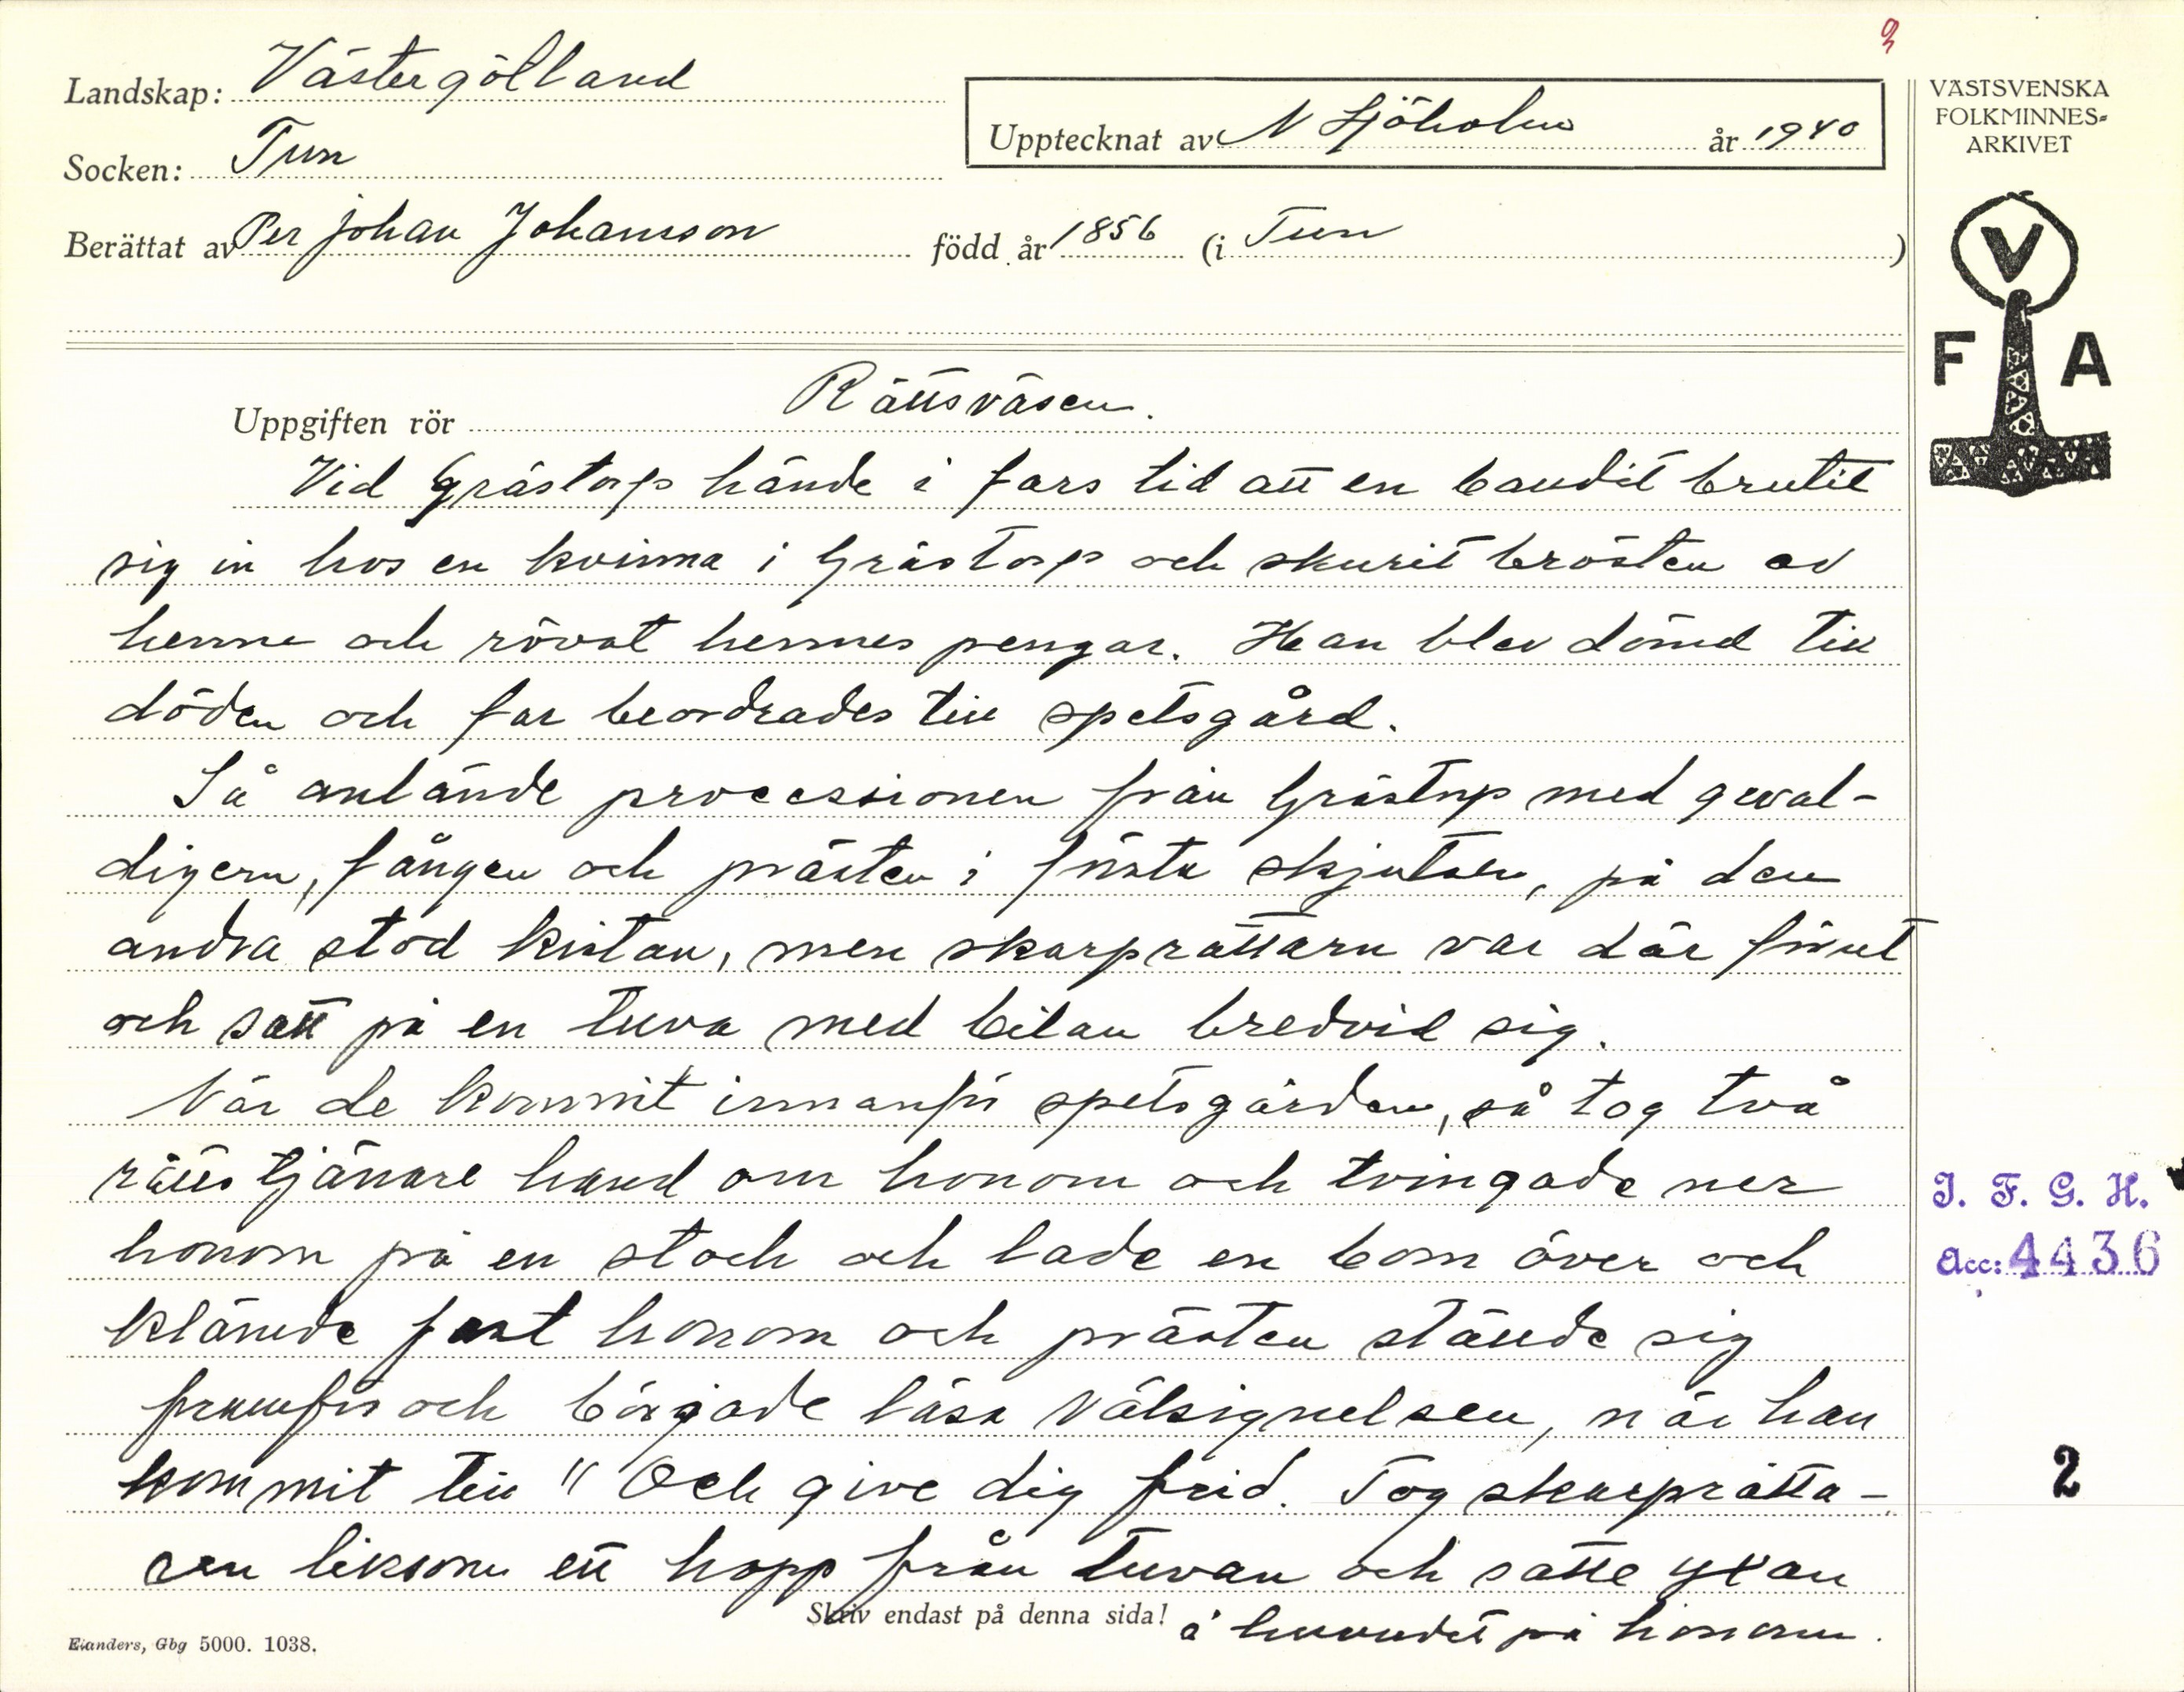 3
Landskap: Västergötland
Socken: Tun
Berättat av Per Johan Johansson född år 1856 (i Tun )
Upptecknat av N Sjöholm år 1940
VÄSTSVENSKA
FOLKMINNES-
ARKIVET
V
F A
Uppgiften rör Rättsväsen.
Vid Grästorp hände i fars tid att en bandit brutit
sig in hos en kvinna i Grästorp och skurit brösten av
henne och rövat hennes pengar. Han blev dömd till
döden och far beordrades till spetsgård.
Så anlände processionen från Grästorp med geval-
digern, fången och prästen i första skjutsen, på den
andra stod kistan, men skarprättarn var där förut
och satt på en tuva med bilan bredvid sig.
När de kommit innanför spetsgården, så tog två
rättstjänare hand om honom och tvingade ner
honom på en stock och lade en bom över och
klämde fast honom och prästen ställde sig
framför och började läsa Välsignelsen, när han
kommit till "Och give dig frid. Tog skarprätta-
ren liksom ett hopp från tuvan och satte yxan
å huvudet på honom.
Skriv endast på denna sida!
Elanders, Gbg 5000. 1038.
I. F. G. H.
Acc: 4436
2